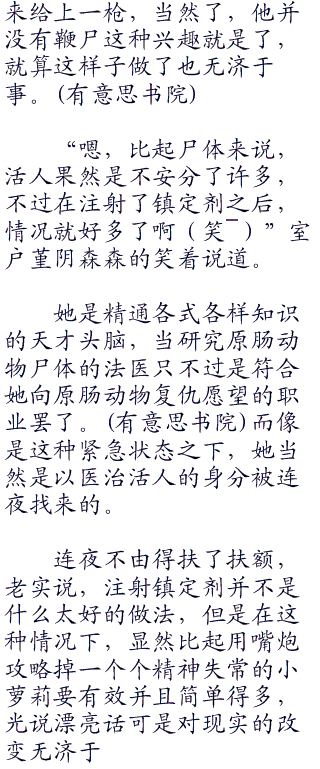 来给上一枪，当然了，他并
没有鞭尸这种兴趣就是了，
就算这样子做了也无济于
事。(有意思书院)
“嗯，比起尸体来说，
活人果然是不安分了许多，
不过在注射了镇定剂之后，
情况就好多了啊（笑¯）”室
户堇阴森森的笑着说道。
她是精通各式各样知识
的天才头脑，当研究原肠动
物尸体的法医只不过是符合
她向原肠动物复仇愿望的职
业罢了。(有意思书院)而像
是这种紧急状态之下，她当
然是以医治活人的身分被连
夜找来的。
连夜不由得扶了扶额，
老实说，注射镇定剂并不是
什么太好的做法，但是在这
种情况下，显然比起用嘴炮
攻略掉一个个精神失常的小
萝莉要有效并且简单得多，
光说漂亮话可是对现实的改
变无济于